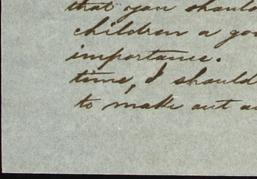 that you should
children a goo
importance.
time, I should
to make out a